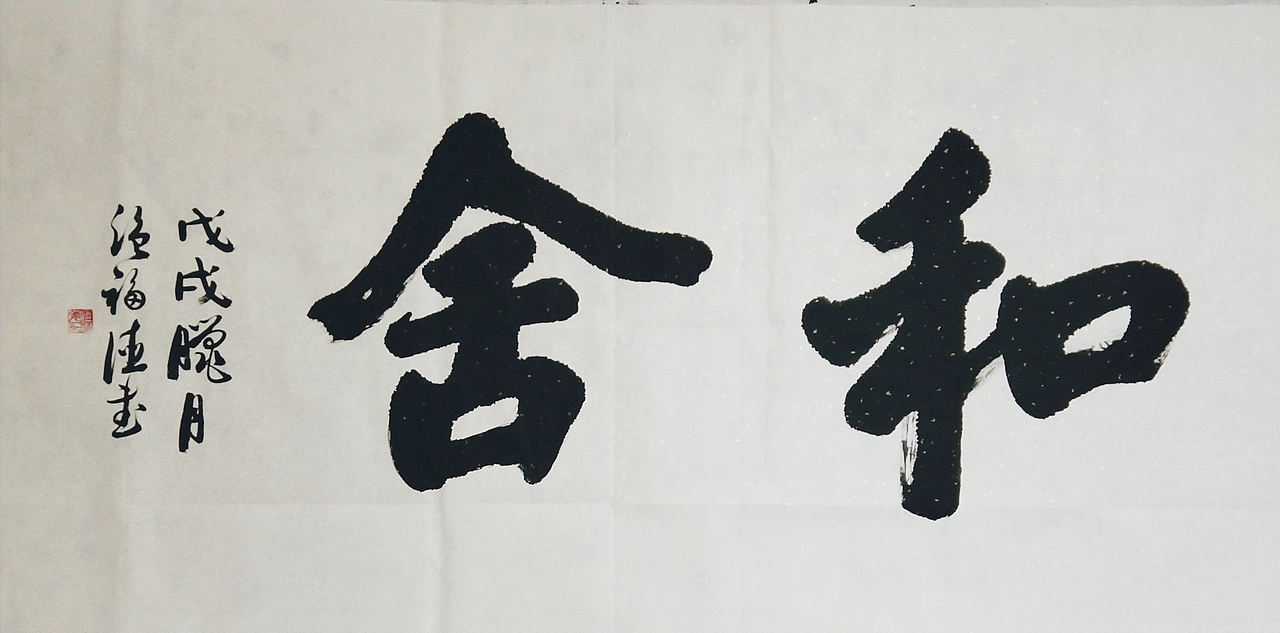 和舍
戊戌臘月
福德書